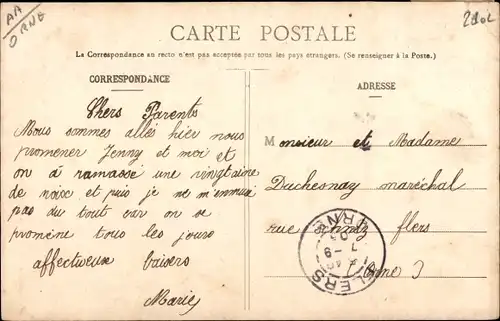 AA
ORNE
CARTE POSTALE
La Correspondance au recto n'est pas acceptée par tous les pays étrangers. (Se renseigner à la Poste.)
CORRESPONDANCE
Chers Parents
Nous sommes allés hier nous
promener Jenny et moi et
on a ramassé une vingtaine
de noix et puis je ne m'ennuie
pas du tout car on se
promène tous les jours
affectueux baisers
Marie
ADRESSE
Monsieur et Madame
Duchesnay maréchal
rue flers
(Orne)
FLERS
ORNE
7 - 9